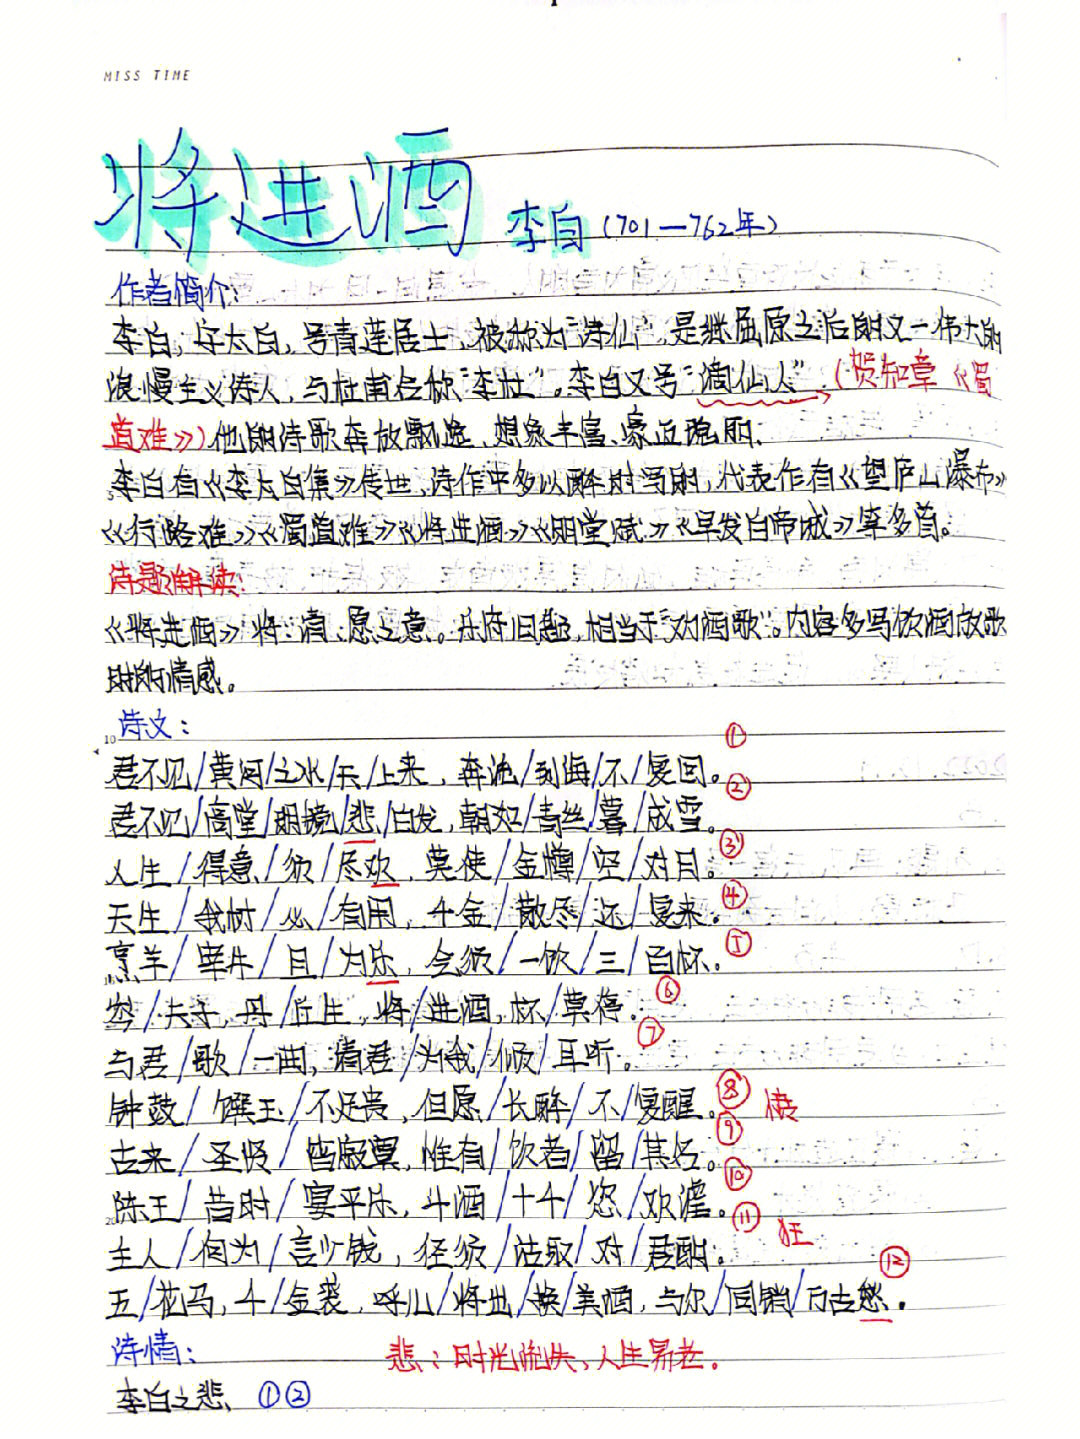 MISS TIME
将进酒 李白（701—762年）
作者简介：
李白，字太白，号青莲居士，被称为"诗仙"，是继屈原之后的又一伟大的
浪漫主义诗人，与杜甫合称"李杜"。李白又号"谪仙人"（贺知章《蜀
道难》）他的诗歌奔放飘逸、想象丰富、豪迈瑰丽、
李白有《李太白集》传世，诗作中多以醉时写的，代表作有《望庐山瀑布》
《行路难》《蜀道难》《将进酒》《明堂赋》《早发白帝城》等多首。
诗题解读：
《将进酒》"将"：请、愿之意。乐府旧题，相当于"劝酒歌"。内容多写饮酒放歌
时的情感。
诗文：
10
君不见/黄河/之水/天/上来，奔流/到海/不/复回。①
君不见/高堂/明镜/悲/白发，朝如/青丝/暮/成雪。②
人生/得意/须/尽欢，莫使/金樽/空/对月。③
天生/我材/必/有用，千金/散尽/还/复来。④
烹羊/宰牛/且/为乐，会须/一饮/三/百杯。⑤
岑/夫子，丹/丘生，将/进酒，杯/莫停。⑥
与君/歌/一曲，请君/为我/倾/耳听。⑦
钟鼓/馔玉/不足贵，但愿/长醉/不/复醒。⑧ 愤
古来/圣贤/皆寂寞，惟有/饮者/留/其名。⑨
陈王/昔时/宴平乐，斗酒/十千/恣/欢谑。⑩
20
主人/何为/言少钱，径须/沽取/对/君酌。⑪ 狂
五/花马，千/金裘，呼儿/将出/换/美酒，与尔/同销/万古愁。⑫
诗情： 悲：时光流失、人生易老。
李白之悲、①②